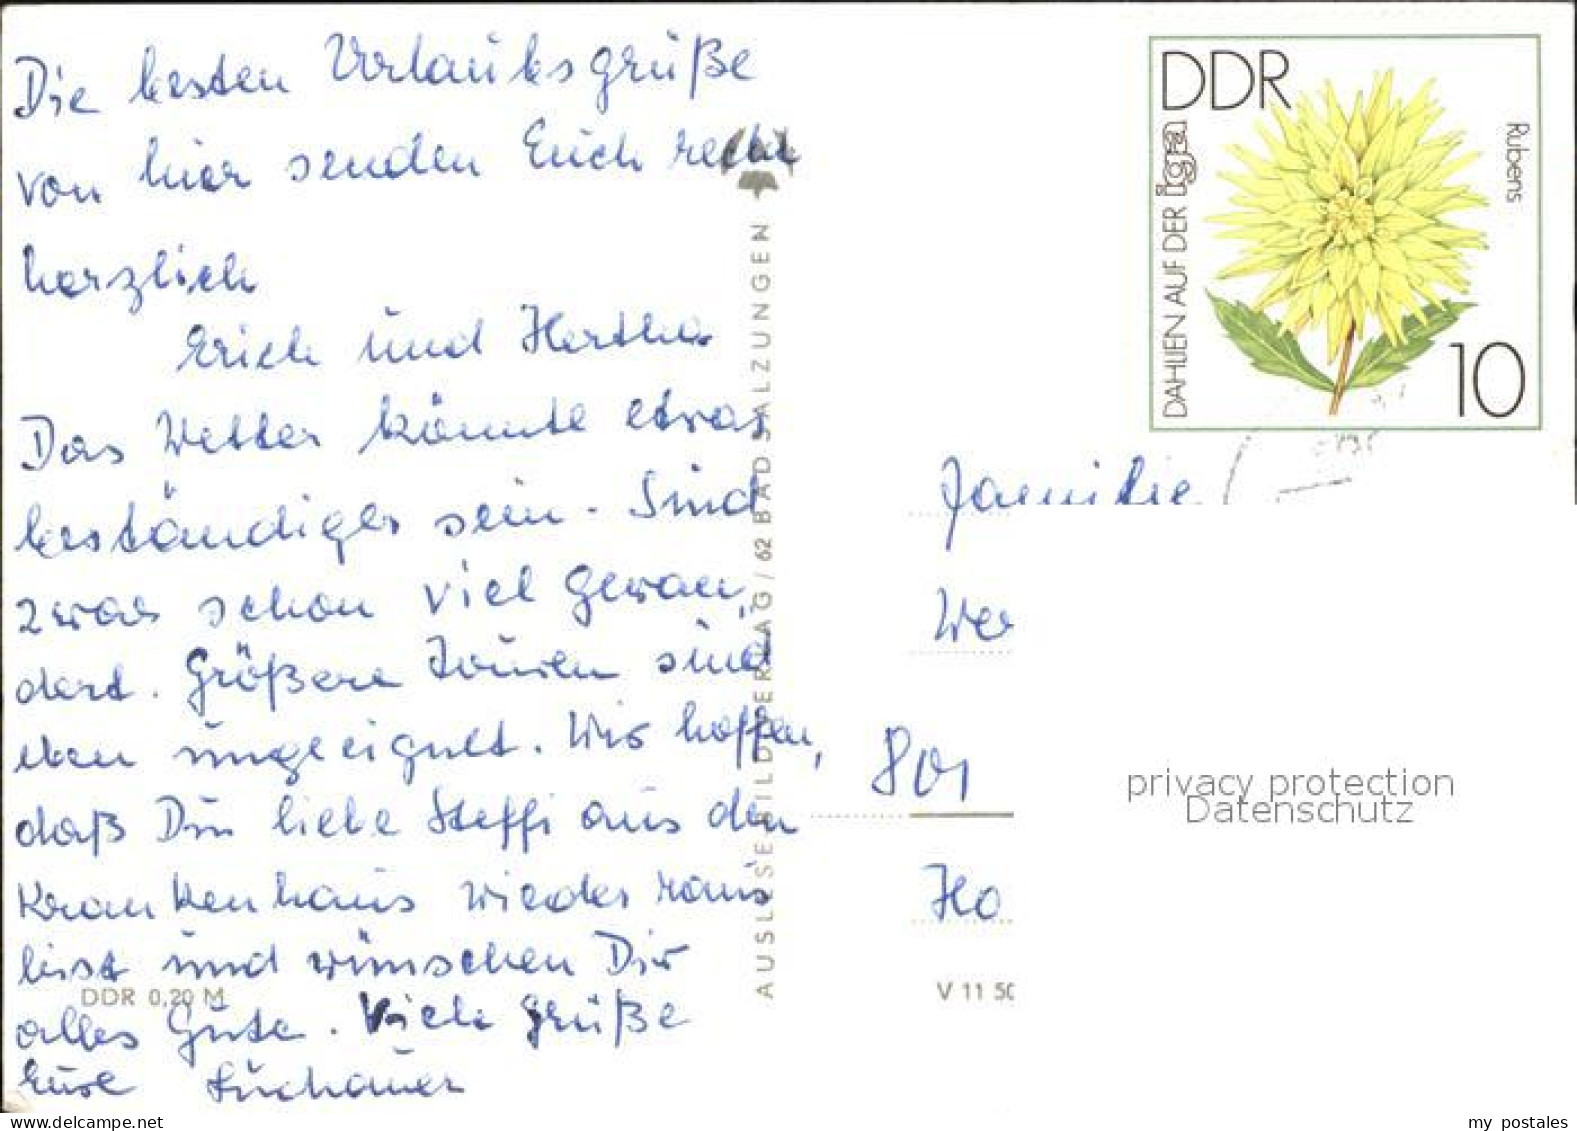 Die besten Urlaubsgrüße
von hier senden Euch recht
herzlich
Erich und Hertha
Das Wetter könnte etwas
beständiger sein. Sind
zwar schon viel gewan,
dert. Größere Touren sind
eben ungeeignet. Wir hoffen,
daß Du liebe Steffi aus dem
Krankenhaus wieder raus
bist und wünschen Dir
alles Gute. Viele Grüße
Eure
DDR 0,20 M
AUSLESE-BILD-VERLAG / 62 BAD SALZUNGEN
DDR
DAHLIEN AUF DER iga
Rubens
10
Familie
Wer
801
Ho
V 11 50
privacy protection
Datenschutz
my postales